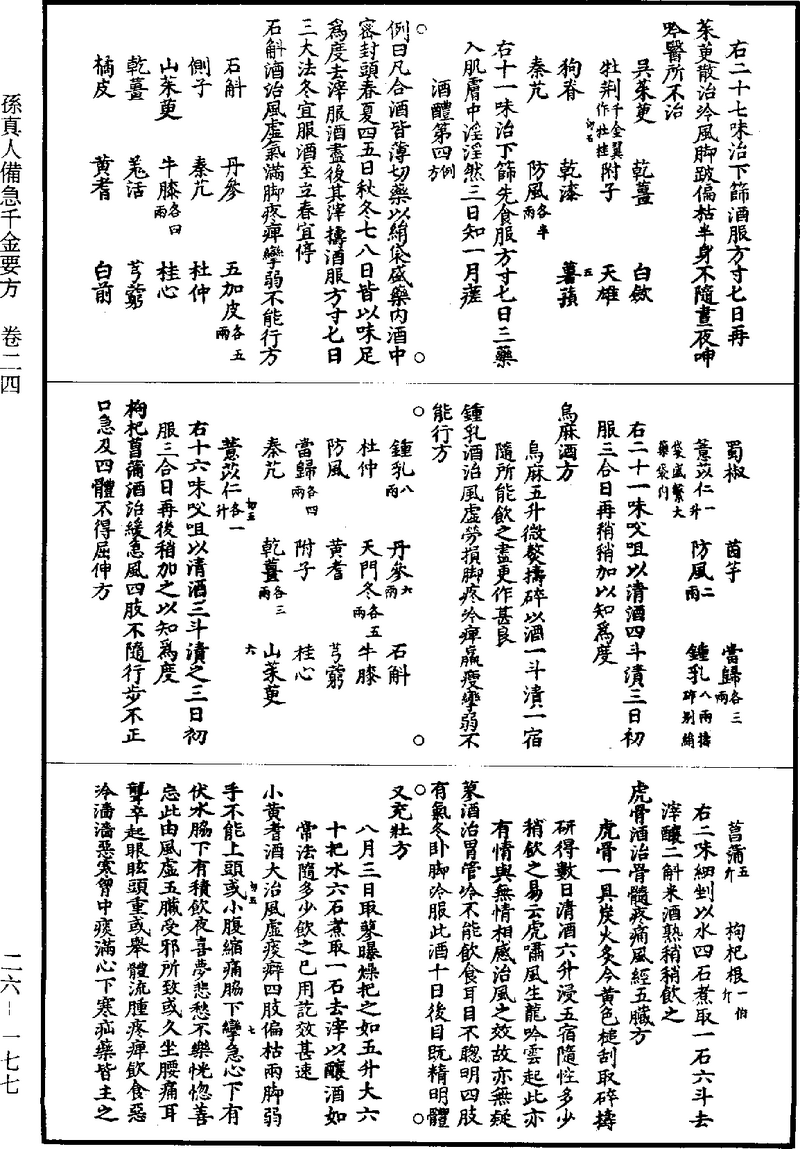 孫真人備急千金要方　卷二四
二六－一七七
右二十七味治下篩酒服方寸匕日再
茱萸散治冷風脚跛偏枯半身不隨晝夜呻
吟醫所不治
吳茱萸　乾薑　白斂
牡荊作牡桂千金翼　附子　天雄
狗脊　乾漆　薯蕷
秦艽　防風各半兩
右十一味治下篩先食服方寸匕日三藥
入肌膚中淫淫然三日知一月瘥
酒醴第四例方
例曰凡合酒皆薄切藥以絹袋盛藥內酒中
密封頭春夏四五日秋冬七八日皆以味足
爲度去滓服酒盡後其滓擣酒服方寸匕日
三大法冬宜服酒至立春宜停
石斛酒治風虛氣滿脚疼痺攣弱不能行方
石斛　丹參　五加皮各五兩
側子　秦艽　杜仲
山茱萸　牛膝各四兩　桂心
乾薑　羌活　芎藭
橘皮　黃耆　白前
蜀椒　茵芋　當歸各三兩
薏苡仁一升　防風二兩　鍾乳八兩擣碎別絹
袋盛繫大
藥袋內
右二十一味㕮咀以清酒四斗漬三日初
服三合日再稍稍加以知爲度
烏麻酒方
烏麻五升微熬擣碎以酒一斗漬一宿
隨所能飲之盡更作甚良
鍾乳酒治風虛勞損脚疼冷痺羸瘦攣弱不
能行方
鍾乳八兩　丹參六兩　石斛
杜仲　天門冬各五兩　牛膝
防風　黃耆　芎藭
當歸各四兩　附子　桂心
秦艽　乾薑各三兩　山茱萸
薏苡仁各一升
右十六味㕮咀以清酒三斗漬之三日初
服三合日再後稍加之以知爲度
枸杞菖蒲酒治緩急風四肢不隨行步不正
口急及四體不得屈伸方
菖蒲五斤　枸杞根一伯斤
右二味細剉以水四石煮取一石六斗去
滓釀二斛米酒熟稍稍飲之
虎骨酒治骨髓疼痛風經五臟方
虎骨一具炭火炙令黃色槌刮取碎擣
研得數日清酒六升浸五宿隨性多少
稍飲之易云虎嘯風生龍吟雲起此亦
有情與無情相感治風之效故亦無疑
蓼酒治胃管冷不能飲食耳目不聰明四肢
有氣冬臥脚冷服此酒十日後目既精明體
又充壯方
八月三日取蓼曝燥把之如五升大六
十把水六石煮取一石去滓以釀酒如
常法隨多少飲之已用訖效甚速
小黃耆酒大治風虛痰癖四肢偏枯兩脚弱
手不能上頭或小腹縮痛脇下攣急心下有
伏水脇下有積飲夜喜夢悲愁不樂恍惚善
忘此由風虛五臟受邪所致或久坐腰痛耳
聾卒起眼眩頭重或舉體流腫疼痺飲食惡
冷濇濇惡寒胷中痰滿心下寒疝藥皆主之